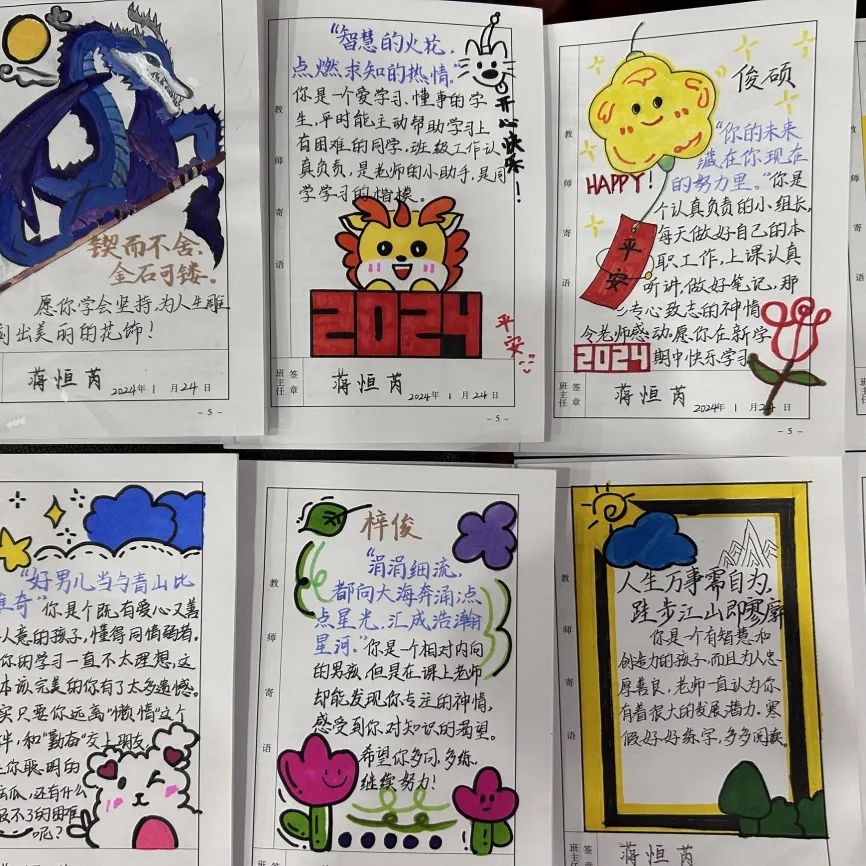 锲而不舍,
金石可镂。
愿你学会坚持,为人生雕
刻出美丽的花饰!
蒋恒芮
2024年1月24日
-5-
"智慧的火花,
点燃求知的热情。"
你是一个爱学习、懂事的学
生,平时能主动帮助学习上
有困难的同学,班级工作认
真负责,是老师的小助手,是同
学学习的楷模。
开心快乐!
2024
平安
教师寄语
班主任签章
蒋恒芮
2024年1月24日
-5-
俊硕
"你的未来
藏在你现在
的努力里。"你是
个认真负责的小组长,
每天做好自己的本
职工作,上课认真
听讲,做好笔记,那
专心致志的神情
令老师感动。愿你在新学
期中快乐学习
HAPPY!
平安
2024
教师寄语
班主任签章
蒋恒芮
2024年1月24日
-5-
"好男儿当与青山比
奇"你是个既有爱心又善
人意的孩子,懂得同情弱者。
你的学习一直不太理想,这
本该完美的你有了太多遗憾。
实只要你远离"懒惰"这个
伴,和"勤奋"交上朋友,
你聪明的
瓜,还有什么
服不了的困难
呢?
梓俊
"涓涓细流,
都向大海奔涌;点
点星光,汇成浩瀚
星河。"你是一个相对内向
的男孩,但是在课上老师
却能发现你专注的神情,
感受到你对知识的渴望。
希望你多问,多练,
继续努力!
教师寄语
人生万事需自为,
跬步江山即寥廓
你是一个有智慧和
创造力的孩子,而且为人忠
厚善良,老师一直认为你
有着很大的发展潜力。寒
假好好练字,多多阅读。
教师寄语
蒋恒芮